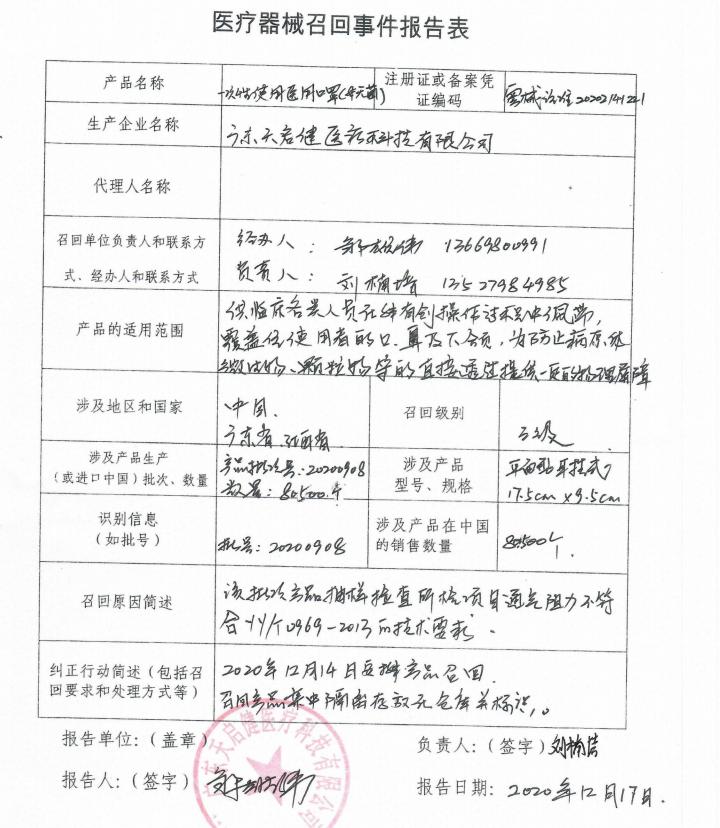 医疗器械召回事件报告表
产品名称
一次性使用医用口罩(非无菌)
注册证或备案凭
证编码
粤械注准20202141221
生产企业名称
广东天启健医疗科技有限公司
代理人名称
召回单位负责人和联系方
式、经办人和联系方式
经办人: 13669800991
负责人: 刘楠培 13527984985
产品的适用范围
供临床各类人员在非有创操作过程中佩带,
覆盖住使用者的口、鼻及下颌,为防止病原体
微生物、颗粒物等的直接透过提供一定的物理屏障
涉及地区和国家
中国.
广东省 江西省
召回级别
三级
涉及产品生产
(或进口中国)批次、数量
产品批次号:20200908
数量:80500个
涉及产品
型号、规格
平面型耳挂式
17.5cm×9.5cm
识别信息
(如批号)
批号:20200908
涉及产品在中国
的销售数量
80500个
召回原因简述
该批次产品抽样检查所检项目通气阻力不符
合YY/T0969-2013的技术要求.
纠正行动简述(包括召
回要求和处理方式等)
2020年12月14日安排产品召回.
召回产品集中隔离存放于仓库并标识。
报告单位:(盖章)
负责人:(签字)
报告人:(签字)
报告日期:2020年12月17日.
广东天启健医疗科技有限公司